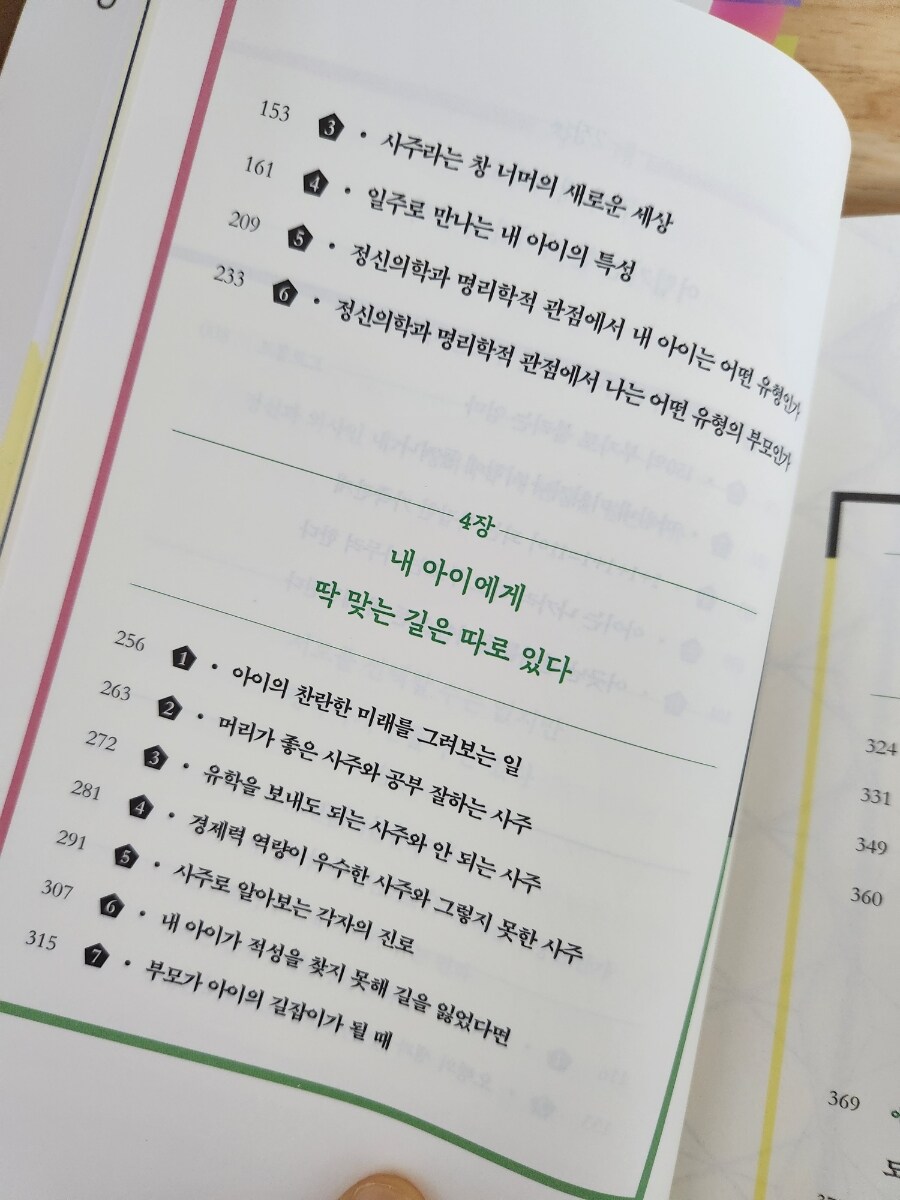 153 3 • 사주라는 창 너머의 새로운 세상
161 4 • 일주로 만나는 내 아이의 특성
209 5 • 정신의학과 명리학적 관점에서 내 아이는 어떤 유형인가
233 6 • 정신의학과 명리학적 관점에서 나는 어떤 유형의 부모인가
4장
내 아이에게
딱 맞는 길은 따로 있다
256 1 • 아이의 찬란한 미래를 그려보는 일
263 2 • 머리가 좋은 사주와 공부 잘하는 사주
272 3 • 유학을 보내도 되는 사주와 안 되는 사주
281 4 • 경제력 역량이 우수한 사주와 그렇지 못한 사주
291 5 • 사주로 알아보는 각자의 진로
307 6 • 내 아이가 적성을 찾지 못해 길을 잃었다면
315 7 • 부모가 아이의 길잡이가 될 때
324
331
349
360
369